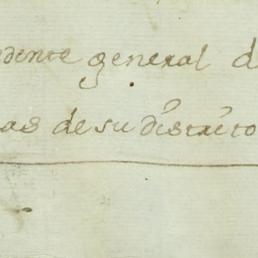 edente general d
as de su distrito